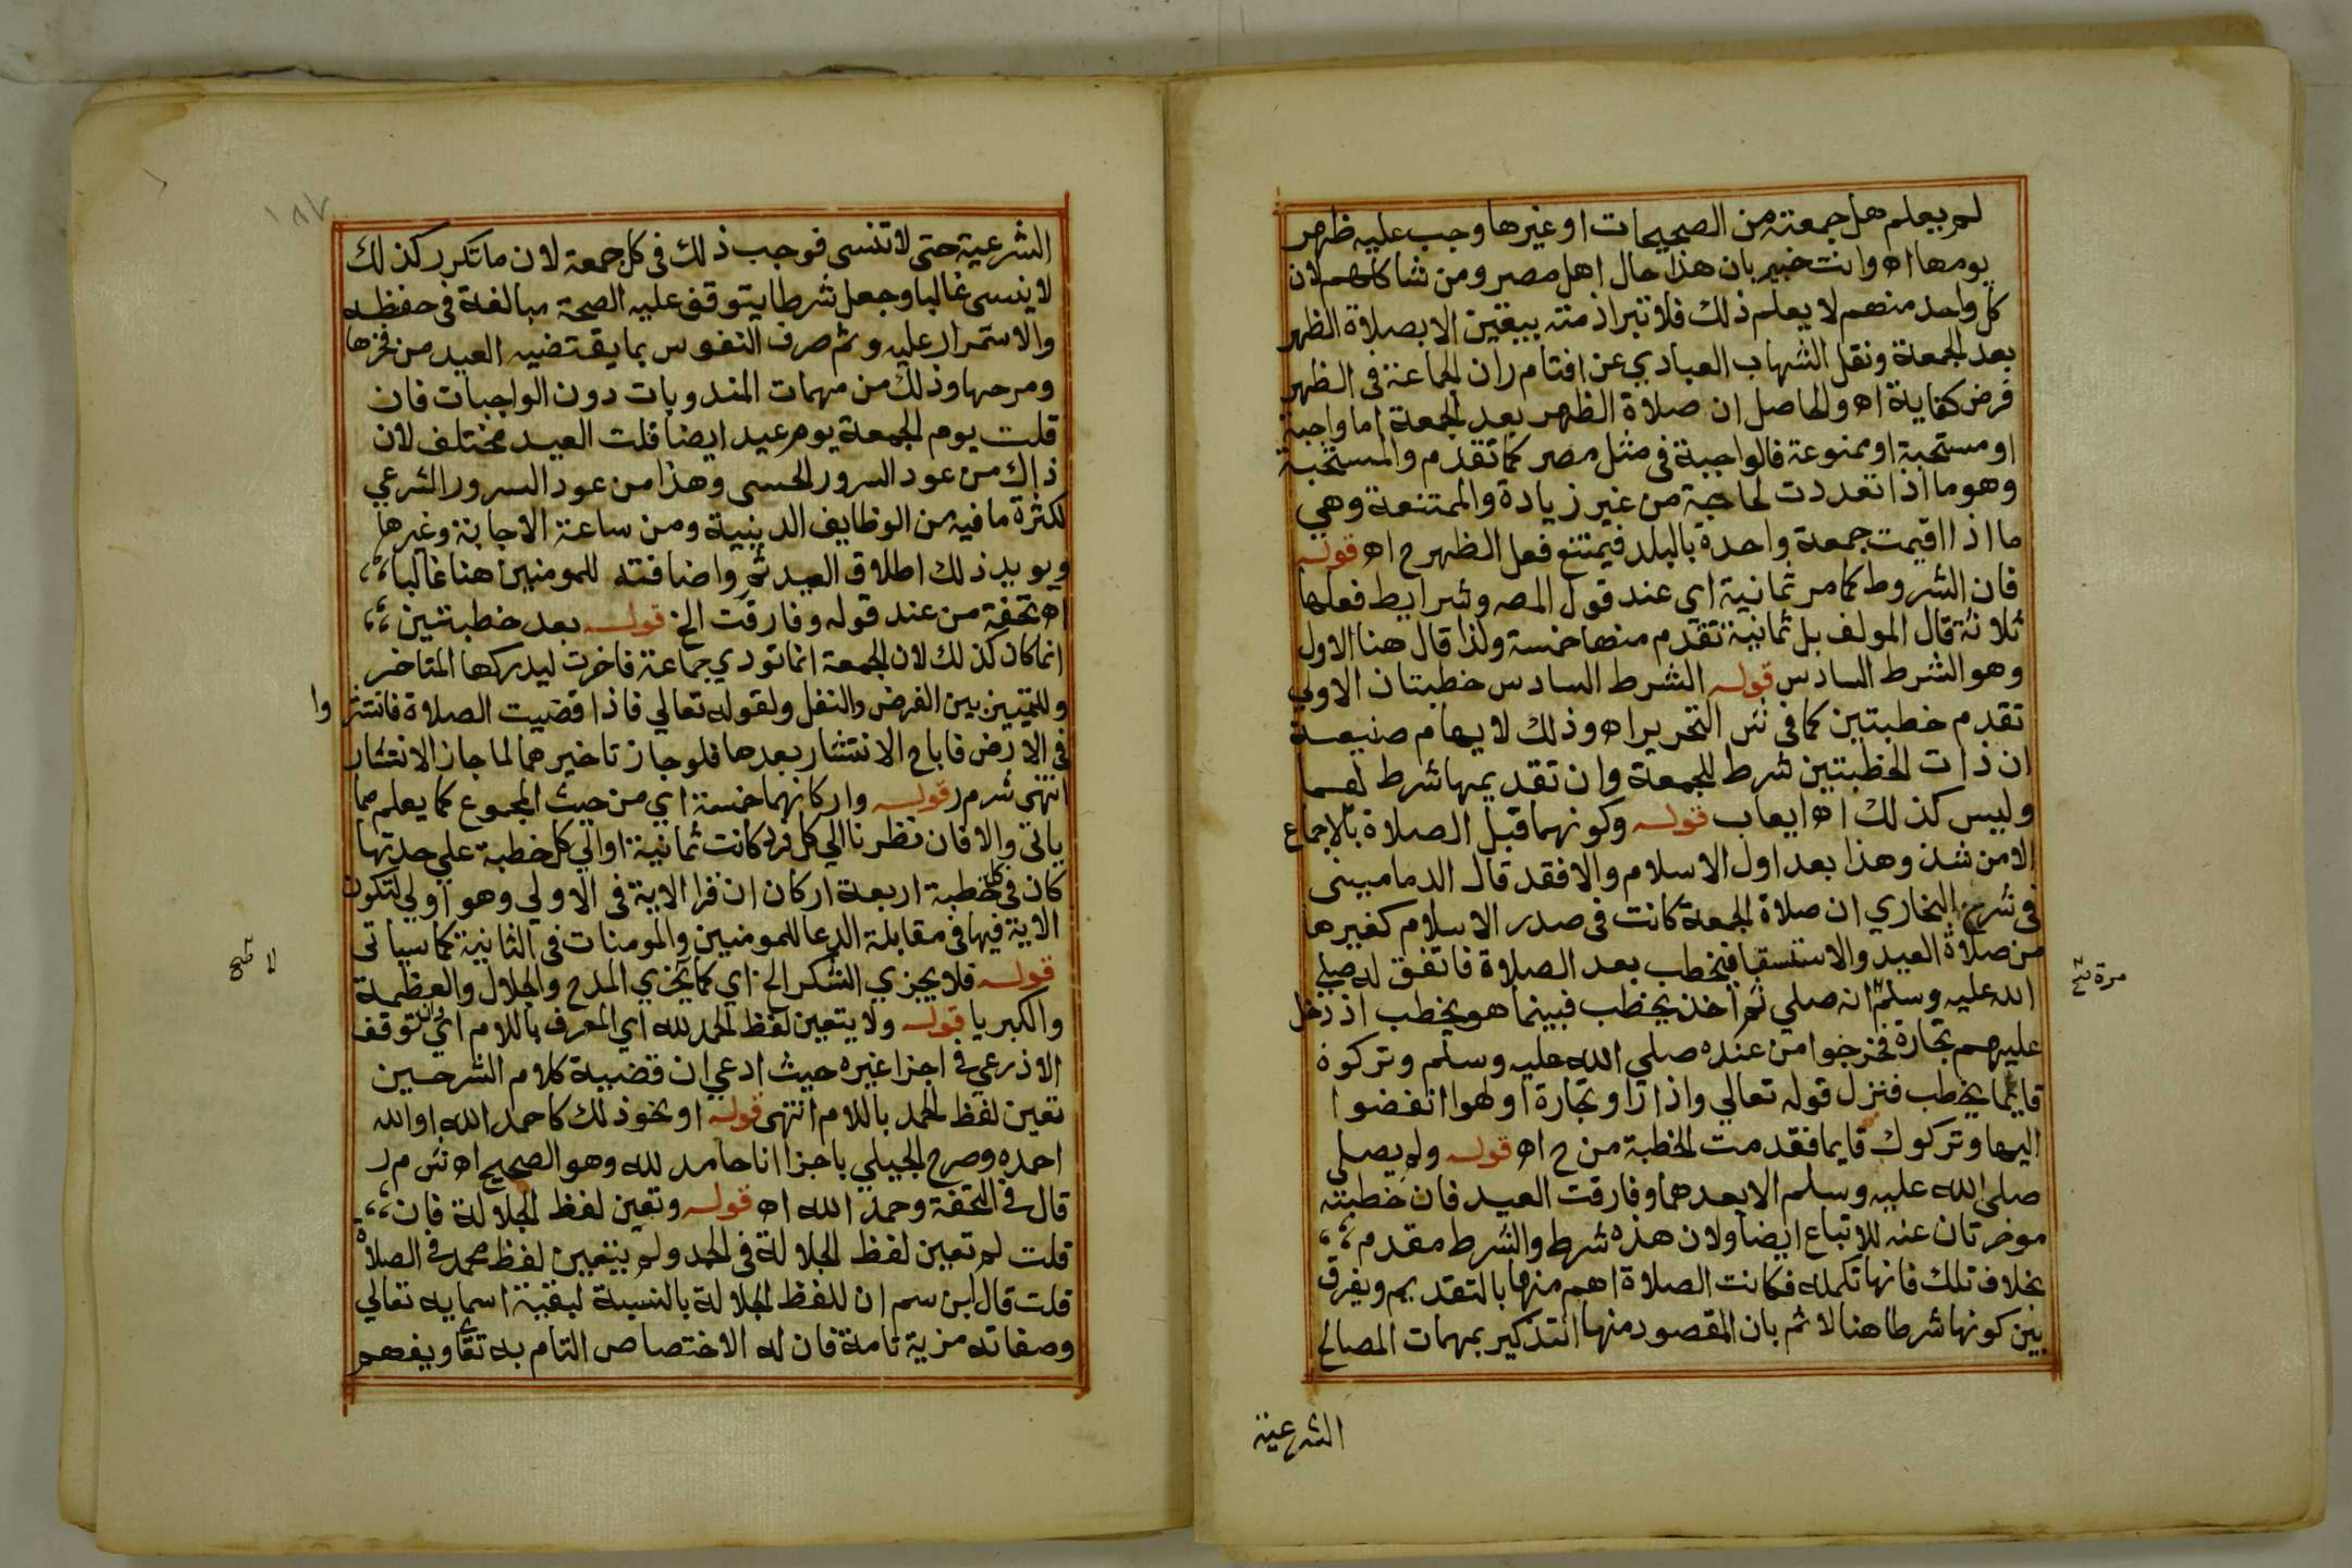 لم يعلم هل جمعته من الصحيحات او غيرها وجب عليه ظهر
يومها اه وانت خبير بان هذا حال اهل مصر ومن شاكلهم لان
كل واحد منهم لا يعلم ذلك فلا تبرا ذمته بيقين الا بصلاة الظهر
بعد الجمعة ونقل الشهاب العبادي عن افتا م ر ان الجماعة في الظهر
فرض كفاية اه والحاصل ان صلاة الظهر بعد الجمعة اما واجبة
او مستحبة او ممنوعة فالواجبة في مثل مصر كما تقدم والمستحبة
وهو ما اذا تعددت لحاجة من غير زيادة والممتنعة وهي
ما اذا اقيمت جمعة واحدة بالبلد فيمتنع فعل الظهر ح اه قوله
فان الشروط كما مر ثمانية اي عند قول المص وشرايط فعلها
ثلاثة قال المولف بل ثمانية تقدم منها خمسة ولذا قال هنا الاول
وهو الشرط السادس قوله الشرط السادس خطبتان الاولي
تقدم خطبتين كما في ش التحرير اه وذلك لايهام صنيعه
ان ذات الخطبتين شرط للجمعة وان تقديمها شرط لهما
وليس كذلك اه ايعاب قوله وكونهما قبل الصلاة بالاجماع
الا من شذ وهذا بعد اول الاسلام والا فقد قال الدماميني
في شرح البخاري ان صلاة الجمعة كانت في صدر الاسلام كغيرها
من صلاة العيد والاستسقا فيخطب بعد الصلاة فاتفق له صلي
الله عليه وسلم انه صلي ثم اخذ يخطب فبينما هو يخطب اذ دخل
مرة صح
عليهم تجارة فخرجوا من عنده صلي الله عليه وسلم وتركوه
قايما يخطب فنزل قوله تعالي واذا راو تجارة او لهوا انفضوا
اليها وتركوك قايما فقدمت الخطبة من ح اه قوله ولم يصلي
صلى الله عليه وسلم الا بعدهما وفارقت العيد فان خطبتيه
موخرتان عنه للاتباع ايضا ولان هذه شرط والشرط مقدم
بخلاف تلك فانها تكمله فكانت الصلاة اهم منها بالتقديم ويفرق
بين كونها شرطا هنا لا ثم بان المقصود منها التذكير بمهمات المصالح
الشرعية
١٨٧
الشرعية حتى لا تنسى فوجب ذلك في كل جمعة لان ما تكرر كذلك
لا ينسى غالبا وجعل شرطا يتوقف عليه الصحة مبالغة في حفظه
والاستمرار عليه وثم صرف النفوس بما يقتضيه العيد من فخرها
ومرحها وذلك من مهمات المندوبات دون الواجبات فان
قلت يوم الجمعة يوم عيد ايضا قلت العيد مختلف لان
ذاك من عود السرور الحسي وهذا من عود السرور الشرعي
لكثرة ما فيه من الوظايف الدينية ومن ساعة الاجابة وغيرها
ويويد ذلك اطلاق العيد ثم واضافته للمومنين هنا غالبا
اه تحفة من عند قوله وفارقت الخ قوله بعد خطبتين
انما كان كذلك لان الجمعة انما تودي جماعة فاخرت ليدركها المتاخر
وللتمييز بين الفرض والنفل ولقوله تعالي فاذا قضيت الصلاة فانتشروا
في الارض فاباح الانتشار بعدها فلو جاز تاخيرهما لما جاز الانتشار
انتهى ش م ر قوله واركانهما خمسة اي من حيث المجموع كما يعلم مما
ياتي والا فان نظرنا الي كل فرد كانت ثمانية او الي كل خطبة علي حدتها
كان في كل خطبة اربعة اركان ان قرا الاية في الاولي وهو اولي لتكون
الاية فيها في مقابلة الدعا للمومنين والمومنات في الثانية كما سياتي
قوله فلا يجزي الشكر الخ اي كما يجزي المدح والجلال والعظمة
لا صح
والكبريا قوله ولا يتعين لفظ الحمد لله اي المعرف باللام اي وان توقف
الاذرعي في اجزا غيره حيث ادعي ان قضية كلام الشرحين
تعين لفظ الحمد باللام انتهى قوله او نحو ذلك كاحمد الله او الله
احمده وصرح الجيلي باجزا انا حامد لله وهو الصحيح اه ش م ر
قال في التحفة وحمد الله اه قوله وتعين لفظ الجلالة فان
قلت لم تعين لفظ الجلالة في الحمد ولم يتعين لفظ محمد في الصلاة
قلت قال ابن سم ان للفظ الجلالة بالنسبة لبقية اسمايه تعالي
وصفاته مزية تامة فان له الاختصاص التام به تعالي ويفهم